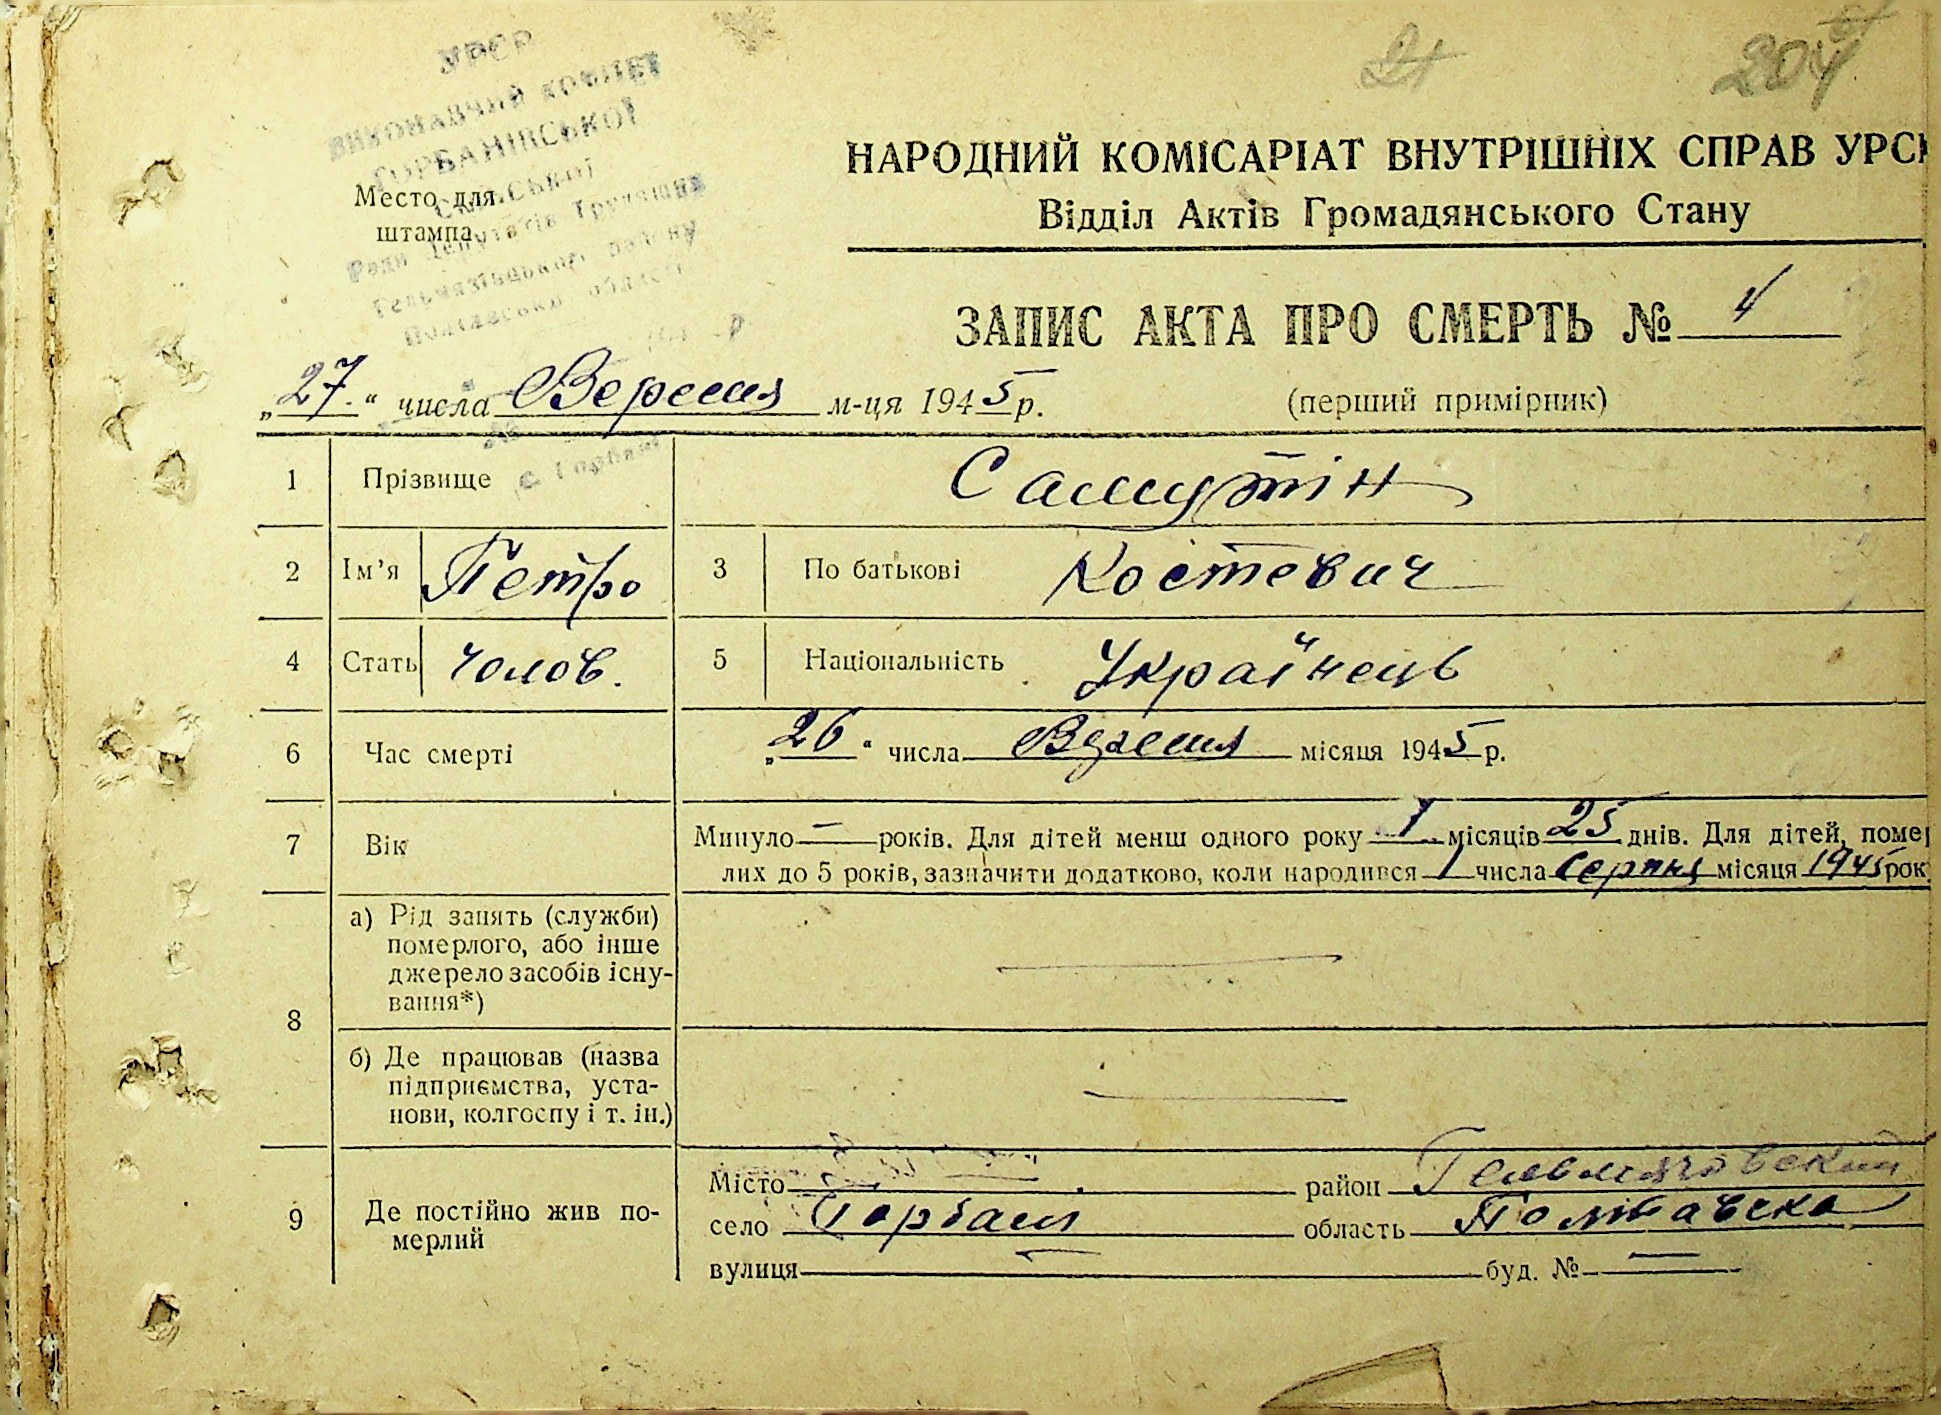 УРСР
ВИКОНАВЧИЙ КОМІТЕТ
ГОРБАНІВСЬКОЇ
Сільської
Ради Депутатів Трудящих
Гельмязівського району
Полтавської області
с. Горбані
Место для
штампа
204
НАРОДНИЙ КОМІСАРІАТ ВНУТРІШНІХ СПРАВ УРСР
Відділ Актів Громадянського Стану
ЗАПИС АКТА ПРО СМЕРТЬ № 4
„27“ числа Вересня м-ця 1945 р.
(перший примірник)
1 Прізвище Самутін
2 Ім’я Петро 3 По батькові Костевич
4 Стать Чолов. 5 Національність Українець
6 Час смерті „26“ числа Вересня місяця 1945 р.
7 Вік Минуло — років. Для дітей менш одного року 1 місяців 25 днів. Для дітей, помер
лих до 5 років, зазначити додатково, коли народився 1 числа Серпня місяця 1945 рок
8 а) Рід занять (служби)
померлого, або інше
джерело засобів існу-
вання*)
—
б) Де працював (назва
підприємства, уста-
нови, колгоспу і т. ін.)
—
9 Де постійно жив по-
мерлий
Місто район Гельмязовский
село Горбані область Полтавська
вулиця — буд. № —